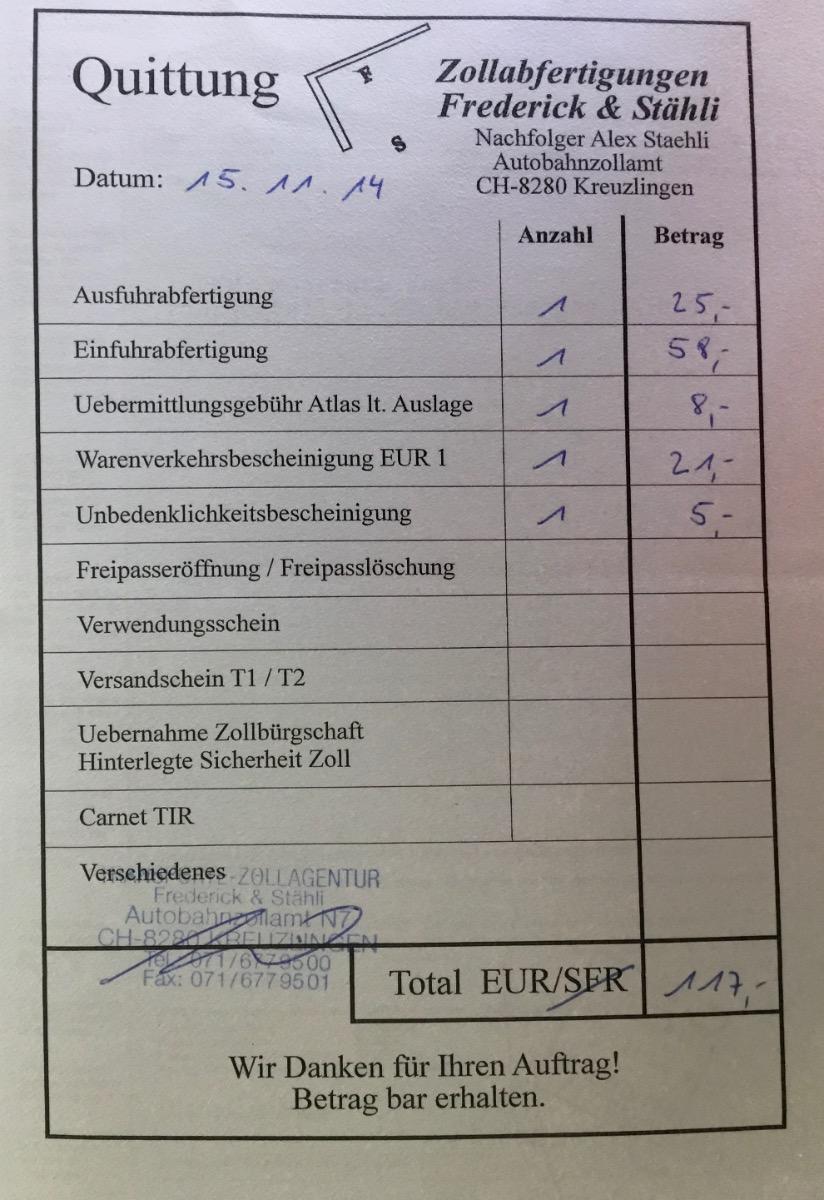 Quittung
F
S
Zollabfertigungen
Frederick & Stähli
Nachfolger Alex Staehli
Autobahnzollamt
CH-8280 Kreuzlingen
Datum: 15. 11. 14
Anzahl Betrag
Ausfuhrabfertigung 1 25,-
Einfuhrabfertigung 1 58,-
Uebermittlungsgebühr Atlas lt. Auslage 1 8,-
Warenverkehrsbescheinigung EUR 1 1 21,-
Unbedenklichkeitsbescheinigung 1 5,-
Freipasseröffnung / Freipasslöschung
Verwendungsschein
Versandschein T1 / T2
Uebernahme Zollbürgschaft
Hinterlegte Sicherheit Zoll
Carnet TIR
Verschiedenes
-ZOLLAGENTUR
Frederick & Stähli
Autobahnzollamt N7
CH-8280 KREUZLINGEN
Tel.: 071/6779500
Fax: 071/6779501
Total EUR/SFR 117,-
Wir Danken für Ihren Auftrag!
Betrag bar erhalten.